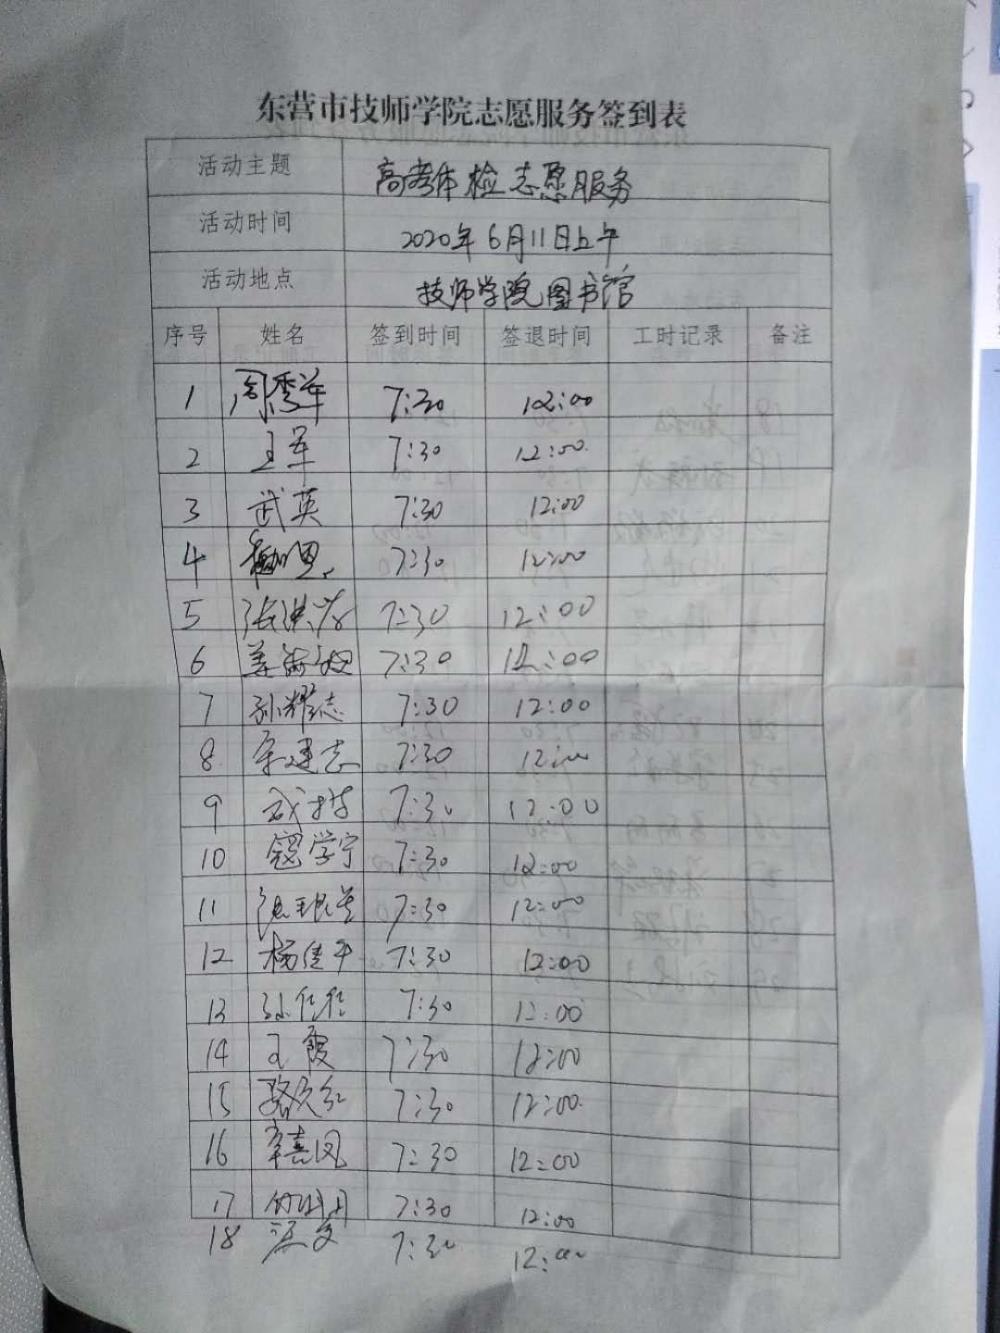 东营市技师学院志愿服务签到表
活动主题 高考体检志愿服务
活动时间 2020年6月11日上午
活动地点 技师学院图书馆
序号 姓名 签到时间 签退时间 工时记录 备注
1 周秀军 7:30 12:00
2 王军 7:30 12:00
3 武英 7:30 12:00
4 7:30 12:00
5 张洪芳 7:30 12:00
6 姜海燕 7:30 12:00
7 孙耀志 7:30 12:00
8 宋建志 7:30 12:00
9 7:30 12:00
10 寇学宁 7:30 12:00
11 7:30 12:00
12 杨佳平 7:30 12:00
13 7:30 12:00
14 王霞 7:30 12:00
15 7:30 12:00
16 李喜凤 7:30 12:00
17 7:30 12:00
18 7:30 12:00